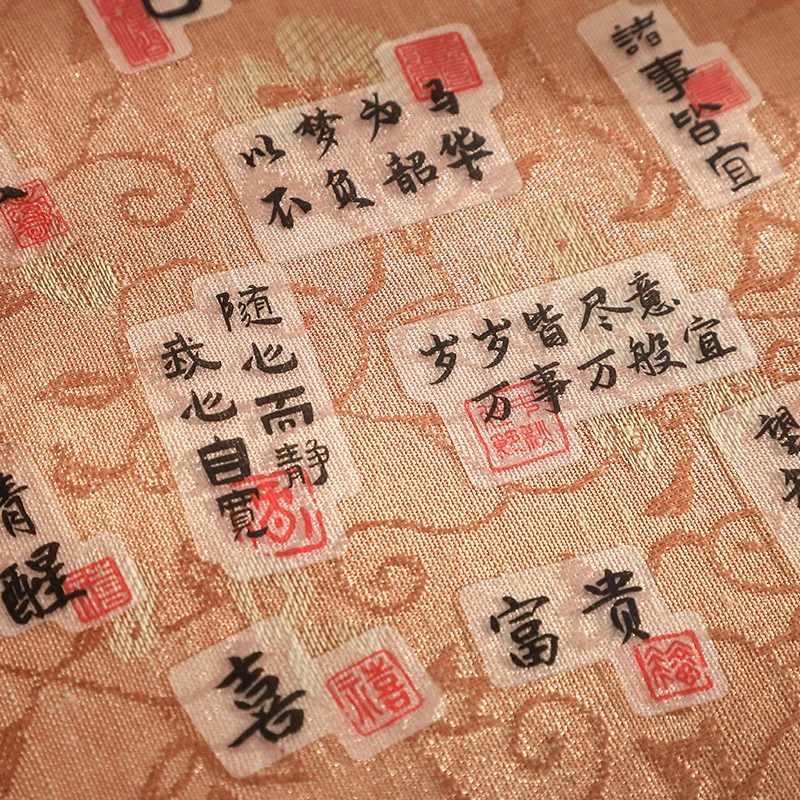 以梦为马
不负韶华
諸事皆宜
随心而静
我心自寬
岁岁皆尽意
万事万般宜
清醒
喜
禧
富贵
福
望